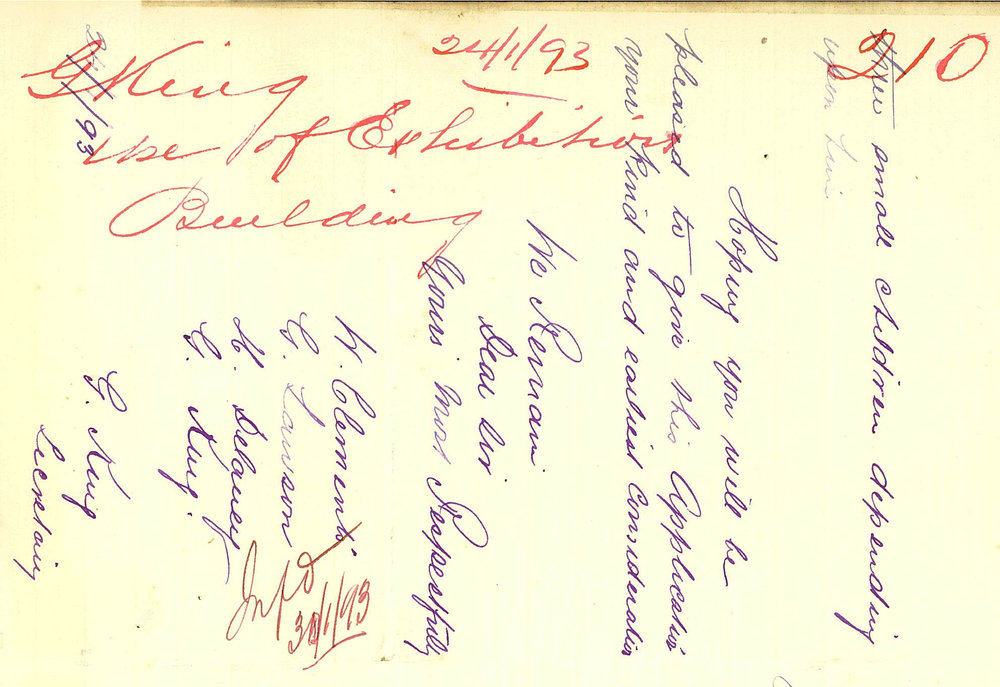 210
24/1/93
G King
use of Exhibition
Building
three small children depending
upon him
Hoping you will be
pleased to give this Application
your kind and earliest Consideration
We Remain
Dear Sir
Yours Most Respectfully
W. Clements
G. Lawson
H. Delaney
G. King
G. King
Secretary
Infd
30/1/93